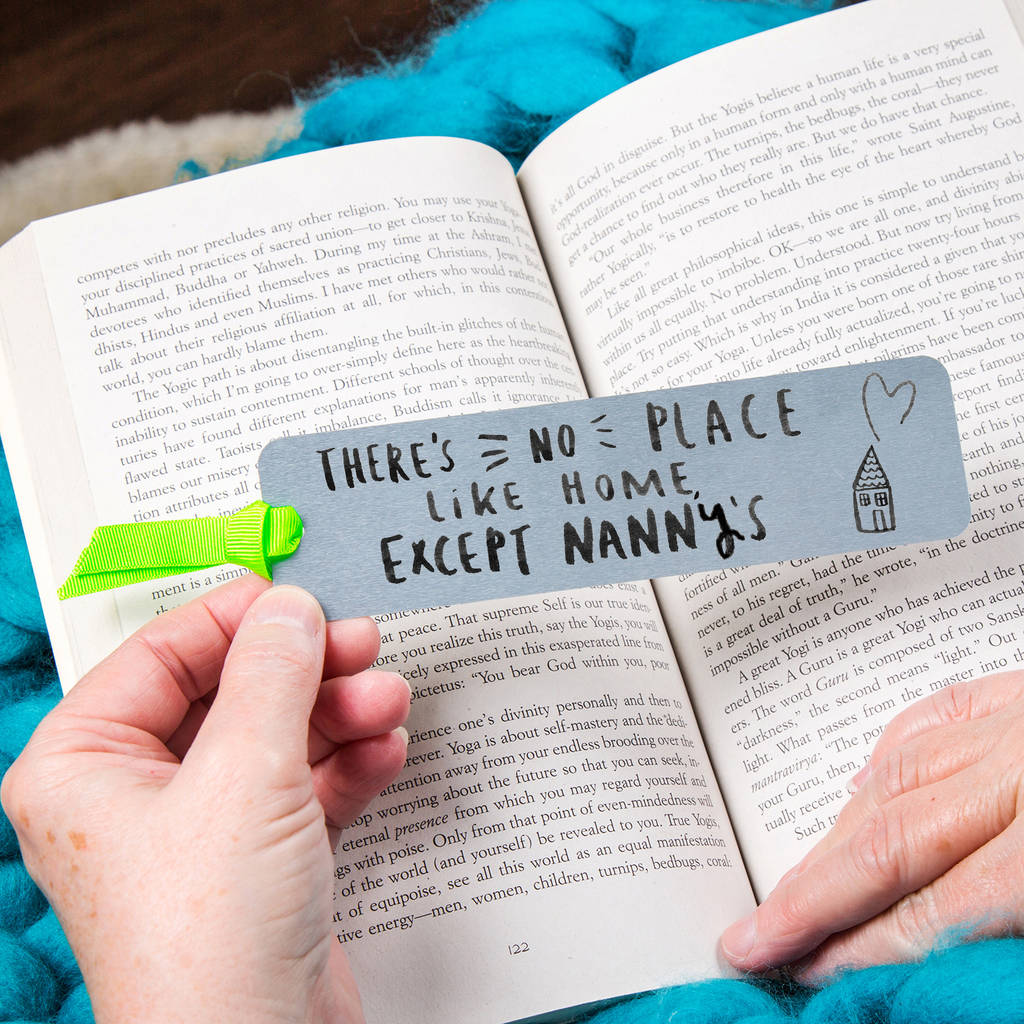 competes with nor precludes any other religion. You may use your Yoga
your disciplined practices of sacred union—to get closer to Krishna, Jesus,
Muhammad, Buddha or Yahweh. During my time at the Ashram, I met
devotees who identified themselves as practicing Christians, Jews, Bud-
dhists, Hindus and even Muslims. I have met others who would rather not
talk about their religious affiliation at all, for which, in this contentious
world, you can hardly blame them.
The Yogic path is about disentangling the built-in glitches of the human
condition, which I'm going to over-simply define here as the heartbreaking
inability to sustain contentment. Different schools of thought over the cen-
turies have found different explanations for man's apparently inherently
flawed state. Taoists call it imbalance, Buddhism calls it ignorance,
blames our misery
tion attributes all
ment is a simple
somewhere
at peace. That supreme Self is our true iden-
ore you realize this truth, say the Yogis, you will
nicely expressed in this exasperated line from
pictetus: "You bear God within you, poor
erience one's divinity personally and then to
rever. Yoga is about self-mastery and the dedi-
attention away from your endless brooding over the
op worrying about the future so that you can seek, in-
eternal presence from which you may regard yourself and
gs with poise. Only from that point of even-mindedness will
of the world (and yourself) be revealed to you. True Yogis,
t of equipoise, see all this world as an equal manifestation
tive energy—men, women, children, turnips, bedbugs, coral:
122
it's all God in disguise. But the Yogis believe a human life is a very special
opportunity, because only in a human form and only with a human mind can
God-realization ever occur. The turnips, the bedbugs, the coral—they never
get a chance to find out who they really are. But we do have that chance.
"Our whole business therefore in this life," wrote Saint Augustine,
rather Yogically, "is to restore to health the eye of the heart whereby God
may be seen."
Like all great philosophical ideas, this one is simple to understand b
virtually impossible to imbibe. OK—so we are all one, and divinity abi
within us all equally. No problem. Understood. But now try living from
place. Try putting that understanding into practice twenty-four hours
It's not so easy. Which is why in India it is considered a given that yo
for your Yoga. Unless you were born one of those rare shin
into life already fully actualized, you're going to n
toward enlightenment. If you're luck
pilgrims have been com
ambassador to
report findi
e first cen
e of his jo
nothing,
ted to st
fortified with
ness of all men." Gand
never, to his regret, had the time
is a great deal of truth," he wrote, "in the doctrine
impossible without a Guru."
A great Yogi is anyone who has achieved the p
ened bliss. A Guru is a great Yogi who can actua
ers. The word Guru is composed of two Sansk
"darkness," the second means "light." Out
light. What passes from the master into the
mantravirya: "The po
your Guru, then,
tually receive
Such tr
THERE'S NO PLACE
LIKE HOME,
EXCEPT NANNY'S